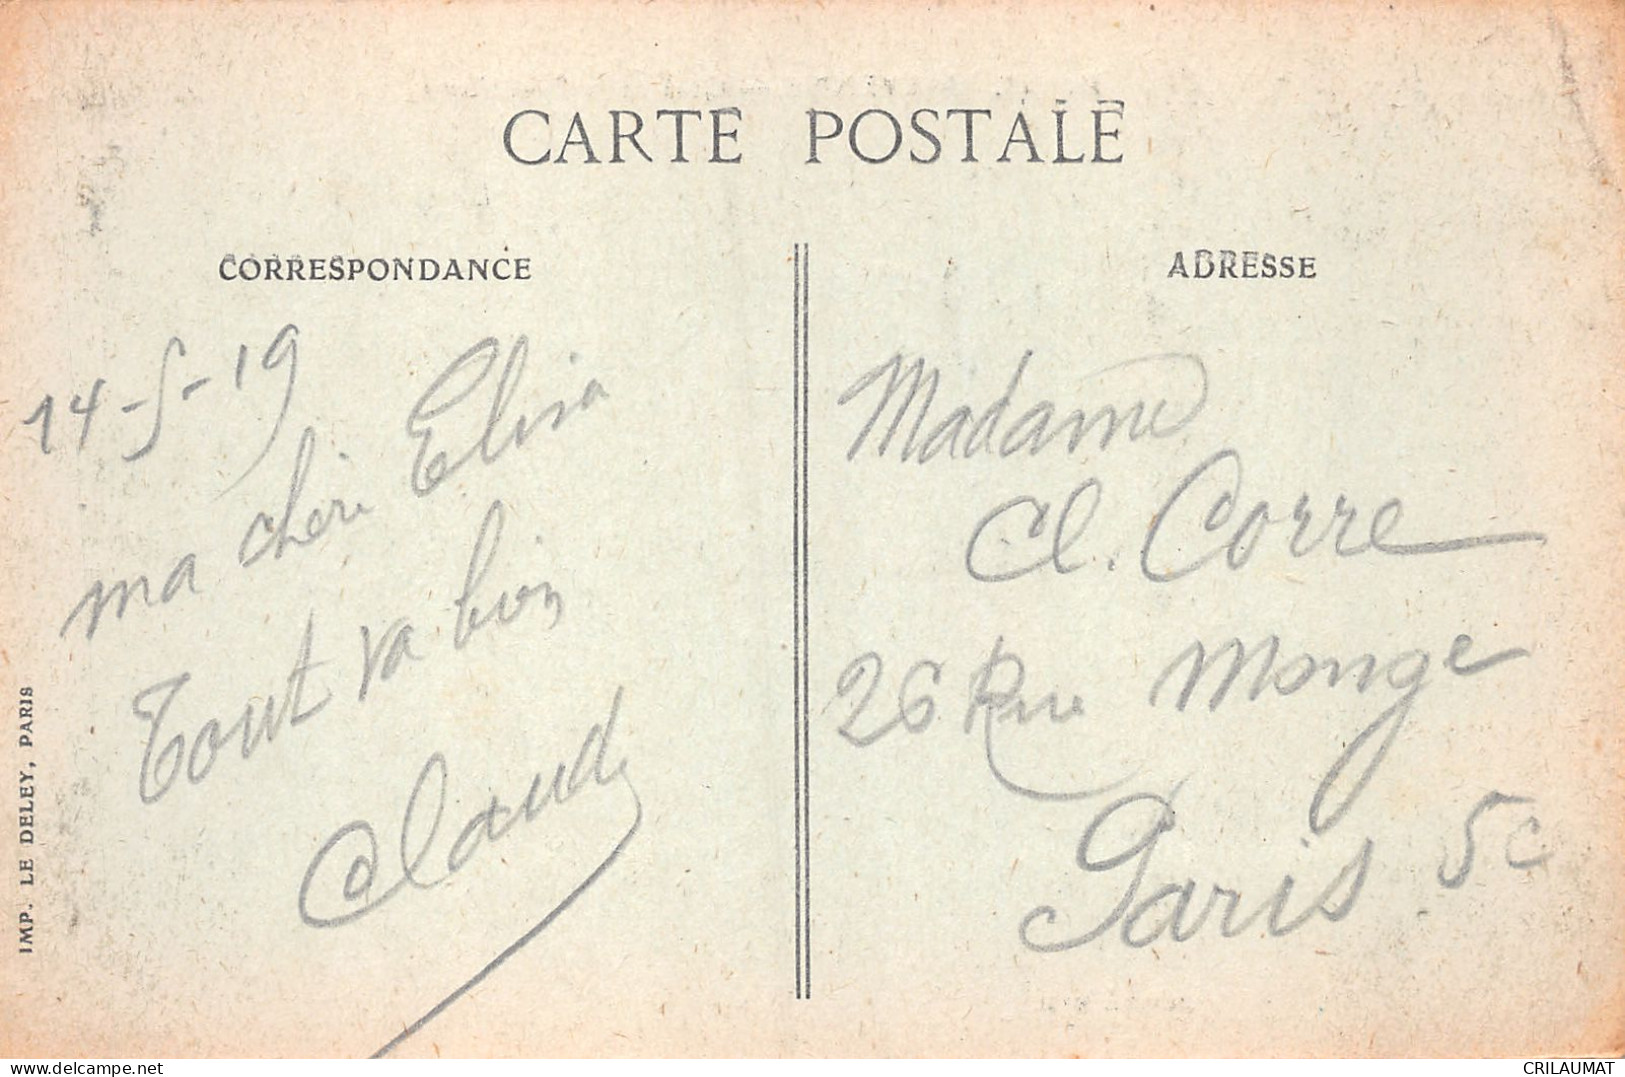 CARTE POSTALE
CORRESPONDANCE
14-5-19
ma chère Elisa
Tout va bien
Claude
IMP. LE DELEY, PARIS
ADRESSE
Madame
Cl. Corre
26 Rue Monge
Paris 5e
delcampe.net
CRILAUMAT